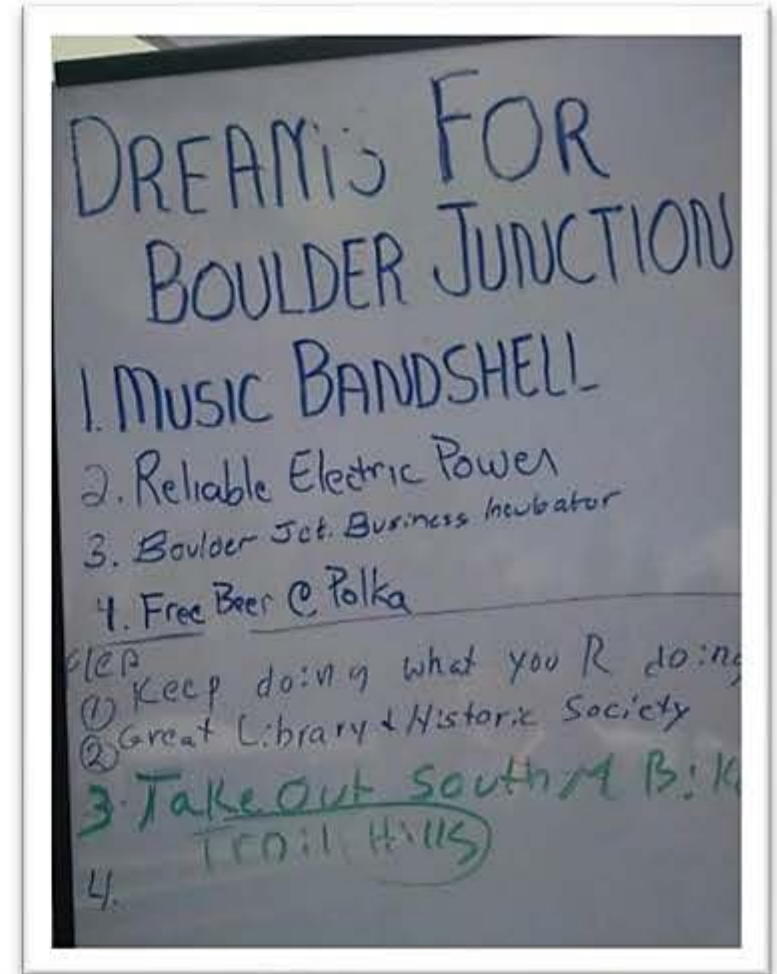 DREAMS FOR
BOULDER JUNCTION
1. MUSIC BANDSHELL
2. Reliable Electric Power
3. Boulder Jct. Business Incubator
4. Free Beer @ Polka
① Keep doing what you R doing
② Great Library & Historic Society
3. Take Out South M Bik
Trail Hills
4.